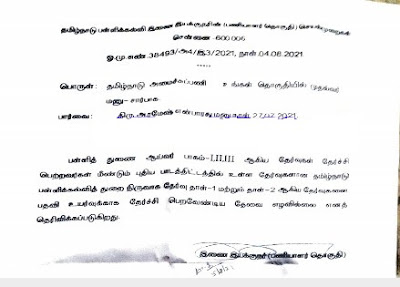 தமிழ்நாடு பள்ளிக்கல்வி இணை இயக்குநரின் (பணியாளர் தொகுதி) செயல்முறைகள்
சென்னை -600006
ஓ.மு.எண் 38493/அ4/இ3/2021, நாள்.04.08.2021
*****
பொருள்: தமிழ்நாடு அமைச்சுப்பணி உங்கள் தொகுதியில் முதல்வர்
மனு- சார்பாக
பார்வை: திரு. 27.02.2021
பள்ளித் துணை ஆய்வர் பாகம்-I,II,III ஆகிய தேர்வுகள் தேர்ச்சி
பெற்றவர்கள் மீண்டும் புதிய பாடத்திட்டத்தில் உள்ள தேர்வுகளான தமிழ்நாடு
பள்ளிக்கல்வித் துறை நிருவாக தேர்வு தாள்-1 மற்றும் தாள்-2 ஆகிய தேர்வுகளை
பதவி உயர்வுக்காக தேர்ச்சி பெறவேண்டிய தேவை எழவில்லை எனத்
தெரிவிக்கப்படுகிறது.
இணை இயக்குநர் (பணியாளர் தொகுதி)